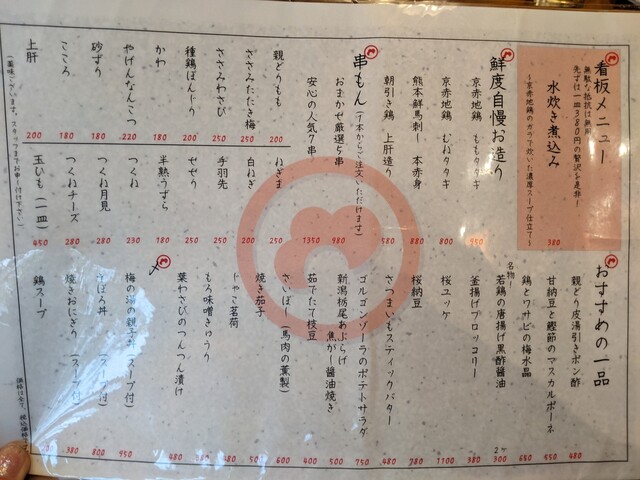 看板メニュー
無駄な抵抗は無用
先ずは一皿380円の贅沢を是非!
水炊き煮込み
~京赤地鶏のガラで炊いた濃厚スープ仕立て~
380
鮮度自慢お造り
京赤地鶏 ももタタキ 950
京赤地鶏 むねタタキ 800
熊本鮮馬刺し 本赤身 880
朝引き鶏 上肝造り 580
串もん(1本からご注文いただけます)
おまかせ厳選5串 980
安心の人気7串 1350
親どりもも 200
ささみたたき梅 200
ささみわさび
種鶏ぼんじり
かわ
やげんなんこつ 220
砂ずり 180
こころ 180
上肝 200
ねぎま 250
白ねぎ 200
手羽先 250
せせり 250
半熟うずら 180
つくね 230
つくね月見 280
つくねチーズ 280
玉ひも(一皿) 450
おすすめの一品
親どり皮湯引きポン酢 480
甘納豆と鰹節のマスカルポーネ 550
鶏とワサビの梅水晶 650
名物!
若鶏の唐揚げ黒酢醤油 2ヶ 300
釜揚げブロッコリー 380
桜ユッケ 1100
桜納豆 780
さつまいもスティックバター 480
ゴルゴンゾーラのポテトサラダ 750
新潟栃尾あぶらげ 焦がし醤油焼き 500
茹でたて枝豆 400
さいぼし(馬肉の薫製) 600
焼き茄子 500
じゃこ茗荷 450
もろ味噌きゅうり 380
葉わさびのつんつん漬け 480
〆
梅の湯の親子丼(スープ付) 950
そぼろ丼(スープ付) 800
焼きおにぎり(スープ付) 380
鶏スープ